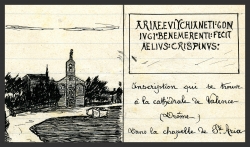 ARIAEEVTYCHIANETI·CON
IVGI·BENEMERENTI·FECIT
AELIVS·CRISPINVS·
Inscription qui se trouve
à la cathédrale de Valence-
(Drôme)
Dans la chapelle de St Aria